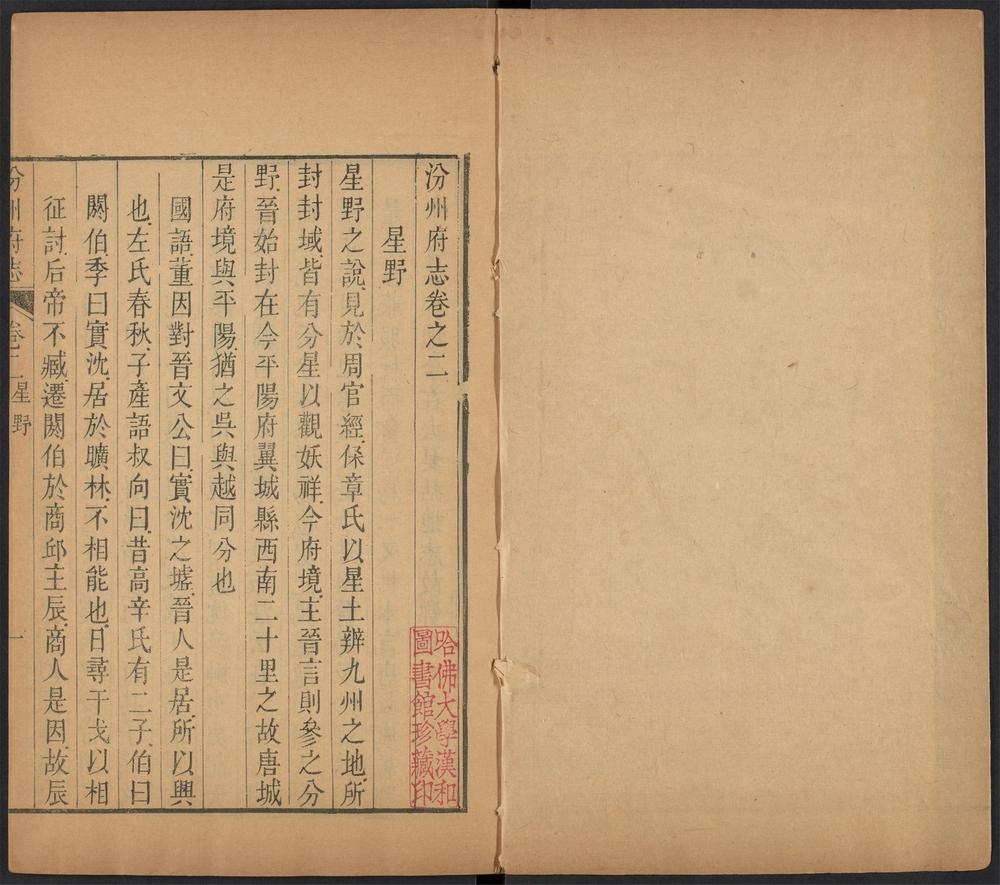 汾州府志卷之二
星野
星野之說見於周官經保章氏以星土辨九州之地所
封封域皆有分星以觀妖祥今府境主晉言則參之分
野晉始封在今平陽府翼城縣西南二十里之故唐城
是府境與平陽猶之吳與越同分也
國語董因對晉文公曰實沈之墟晉人是居所以興
也左氏春秋子產語叔向曰昔高辛氏有二子伯曰
閼伯季曰實沈居於曠林不相能也日尋干戈以相
征討后帝不臧遷閼伯於商邱主辰商人是因故辰
汾州府志
卷二星野
一
哈佛大學漢和
圖書館珍藏印